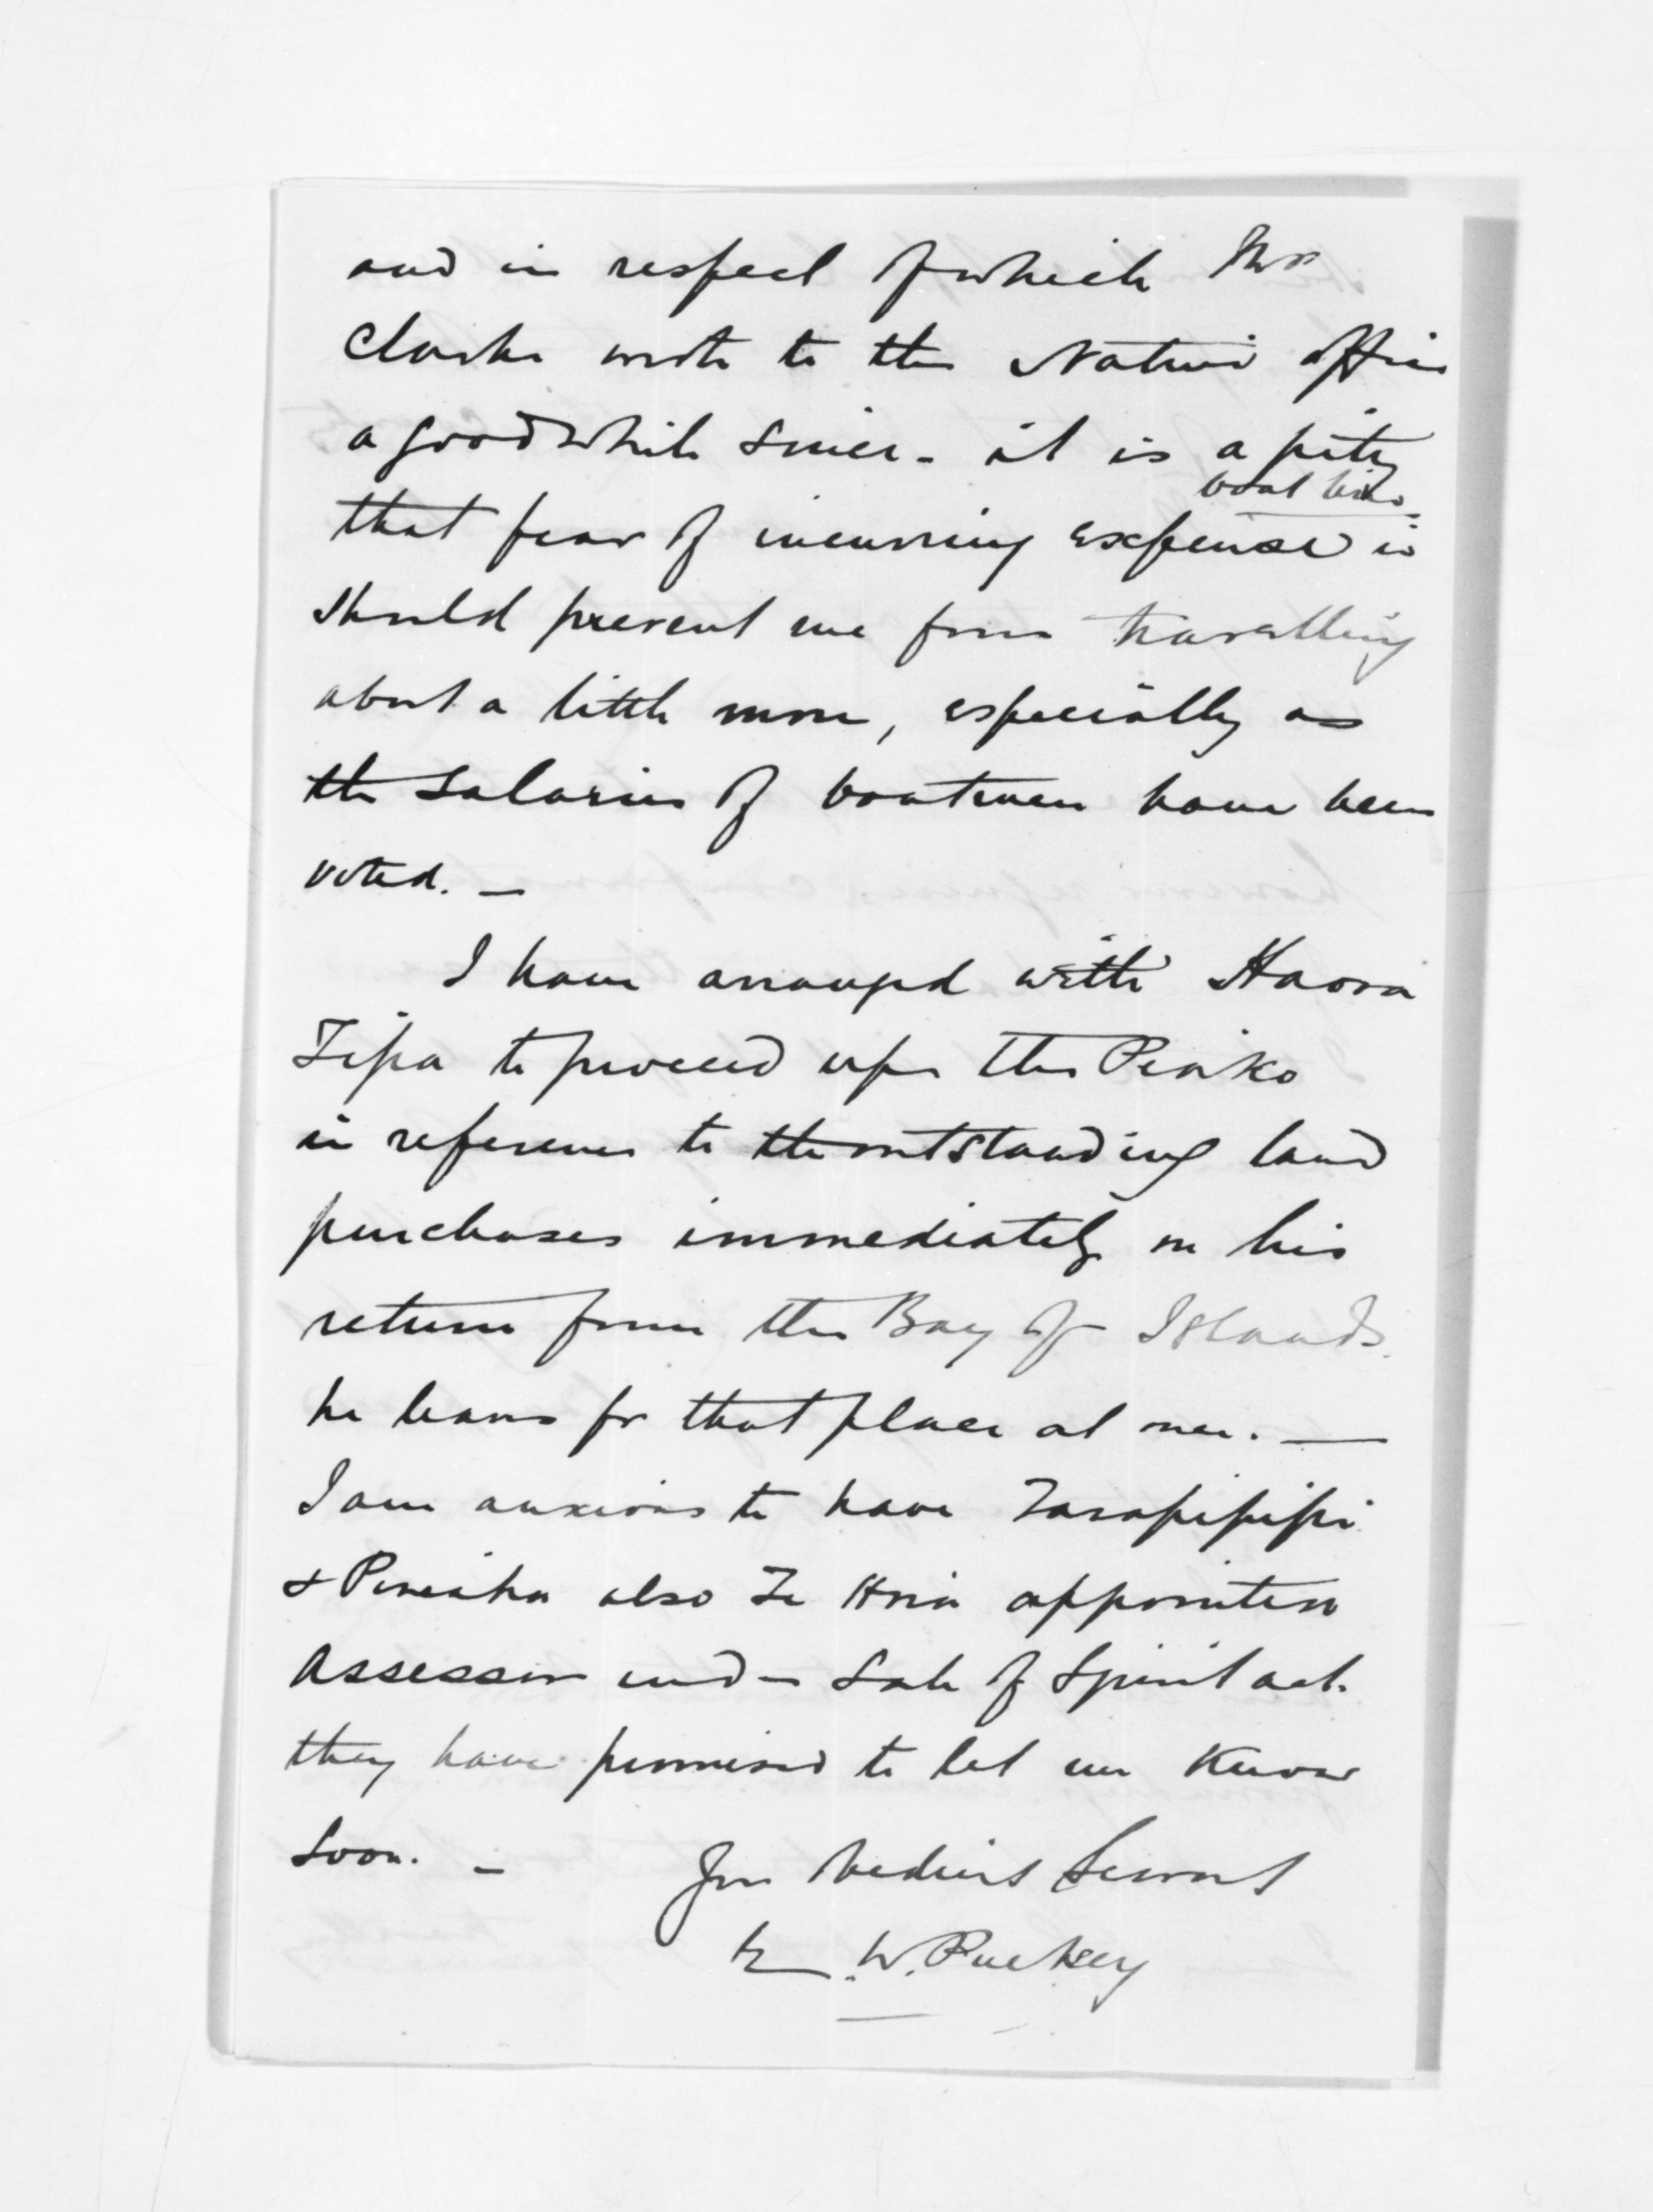 and in respect of which Mr
Clarke wrote to the Native Office
a good while since - it is a pity
boat hire -
that fear of incurring expense in
should prevent me from travelling
about a little more, especially as
the salaries of boatmen have been
voted. -
I have arranged with Haora
Tipa to proceed up the Piako
in reference to the outstanding land
purchases immediately on his
return from the Bay of Islands.
he leaves for that place at once. —
I am anxious to have Tarapipipi
& Pineaha also Te Hira appointed
Assessor und- Sale of Spirit act.
they have promised to let me know
soon. - Your obedient Servant
E. W. Puckey